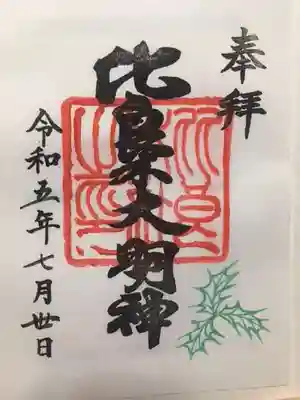 奉拝
比良木大明神
令和五年七月丗日